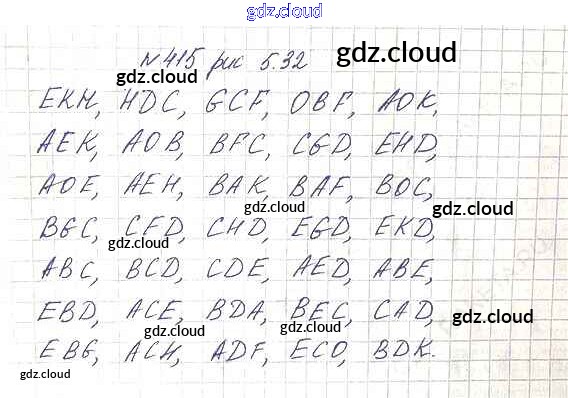 gdz.cloud
№415 рис 5.32
gdz.cloud
gdz.cloud
EKH, HDC, GCF, OBF, AOK,
gdz.cloud
AEK, AOB, BFC, CGD, EHD,
AOE, AEH, BAK, BAF, BOC,
gdz.cloud
gdz.cloud
BGC, CFD, CHD, EGD, EKD,
gdz.cloud
ABC, BCD, CDE, AED, ABE,
EBD, ACE, BDA, BEC, CAD,
gdz.cloud
gdz.cloud
gdz.cloud
EBG, ACH, ADF, ECO, BDK.
gdz.cloud